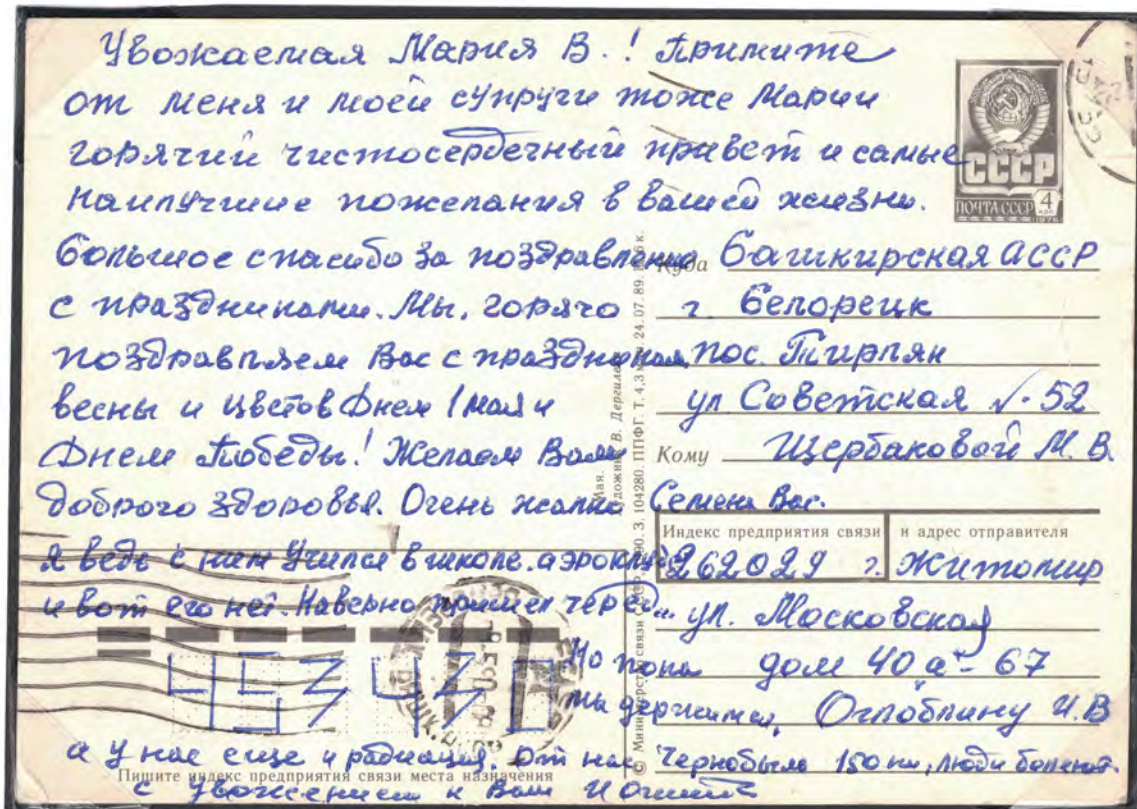 Уважаемая Мария В.! Примите
от меня и моей супруги тоже Марии
горячий чистосердечный привет и самые
наилучшие пожелания в вашей жизни.
Большое спасибо за поздравление
с праздниками. Мы, горячо
поздравляем Вас с праздником
весны и цветов Днем 1 мая и
Днем Победы! Желаем Вам
доброго здоровья. Очень жалко Семена Вас.
я ведь с ним учился в школе, аэроклубе
и вот его нет. Наверно пришел черед..
Но пока
мы держимся,
а у нас еще и радиация. От нас Чернобыль 150 км, люди болеют.
с уважением к Вам
СССР
ПОЧТА СССР 4 коп
1976
Куда Башкирская АССР
г Белорецк
пос. Тирлян
ул Советская №52
Кому Щербаковой М. В.
Индекс предприятия связи и адрес отправителя
262029 г. Житомир
ул. Московская
дом 40а - 67
Оглоблину И.В
453430
Пишите индекс предприятия связи места назначения
Мая.
Художник В. Дергилев